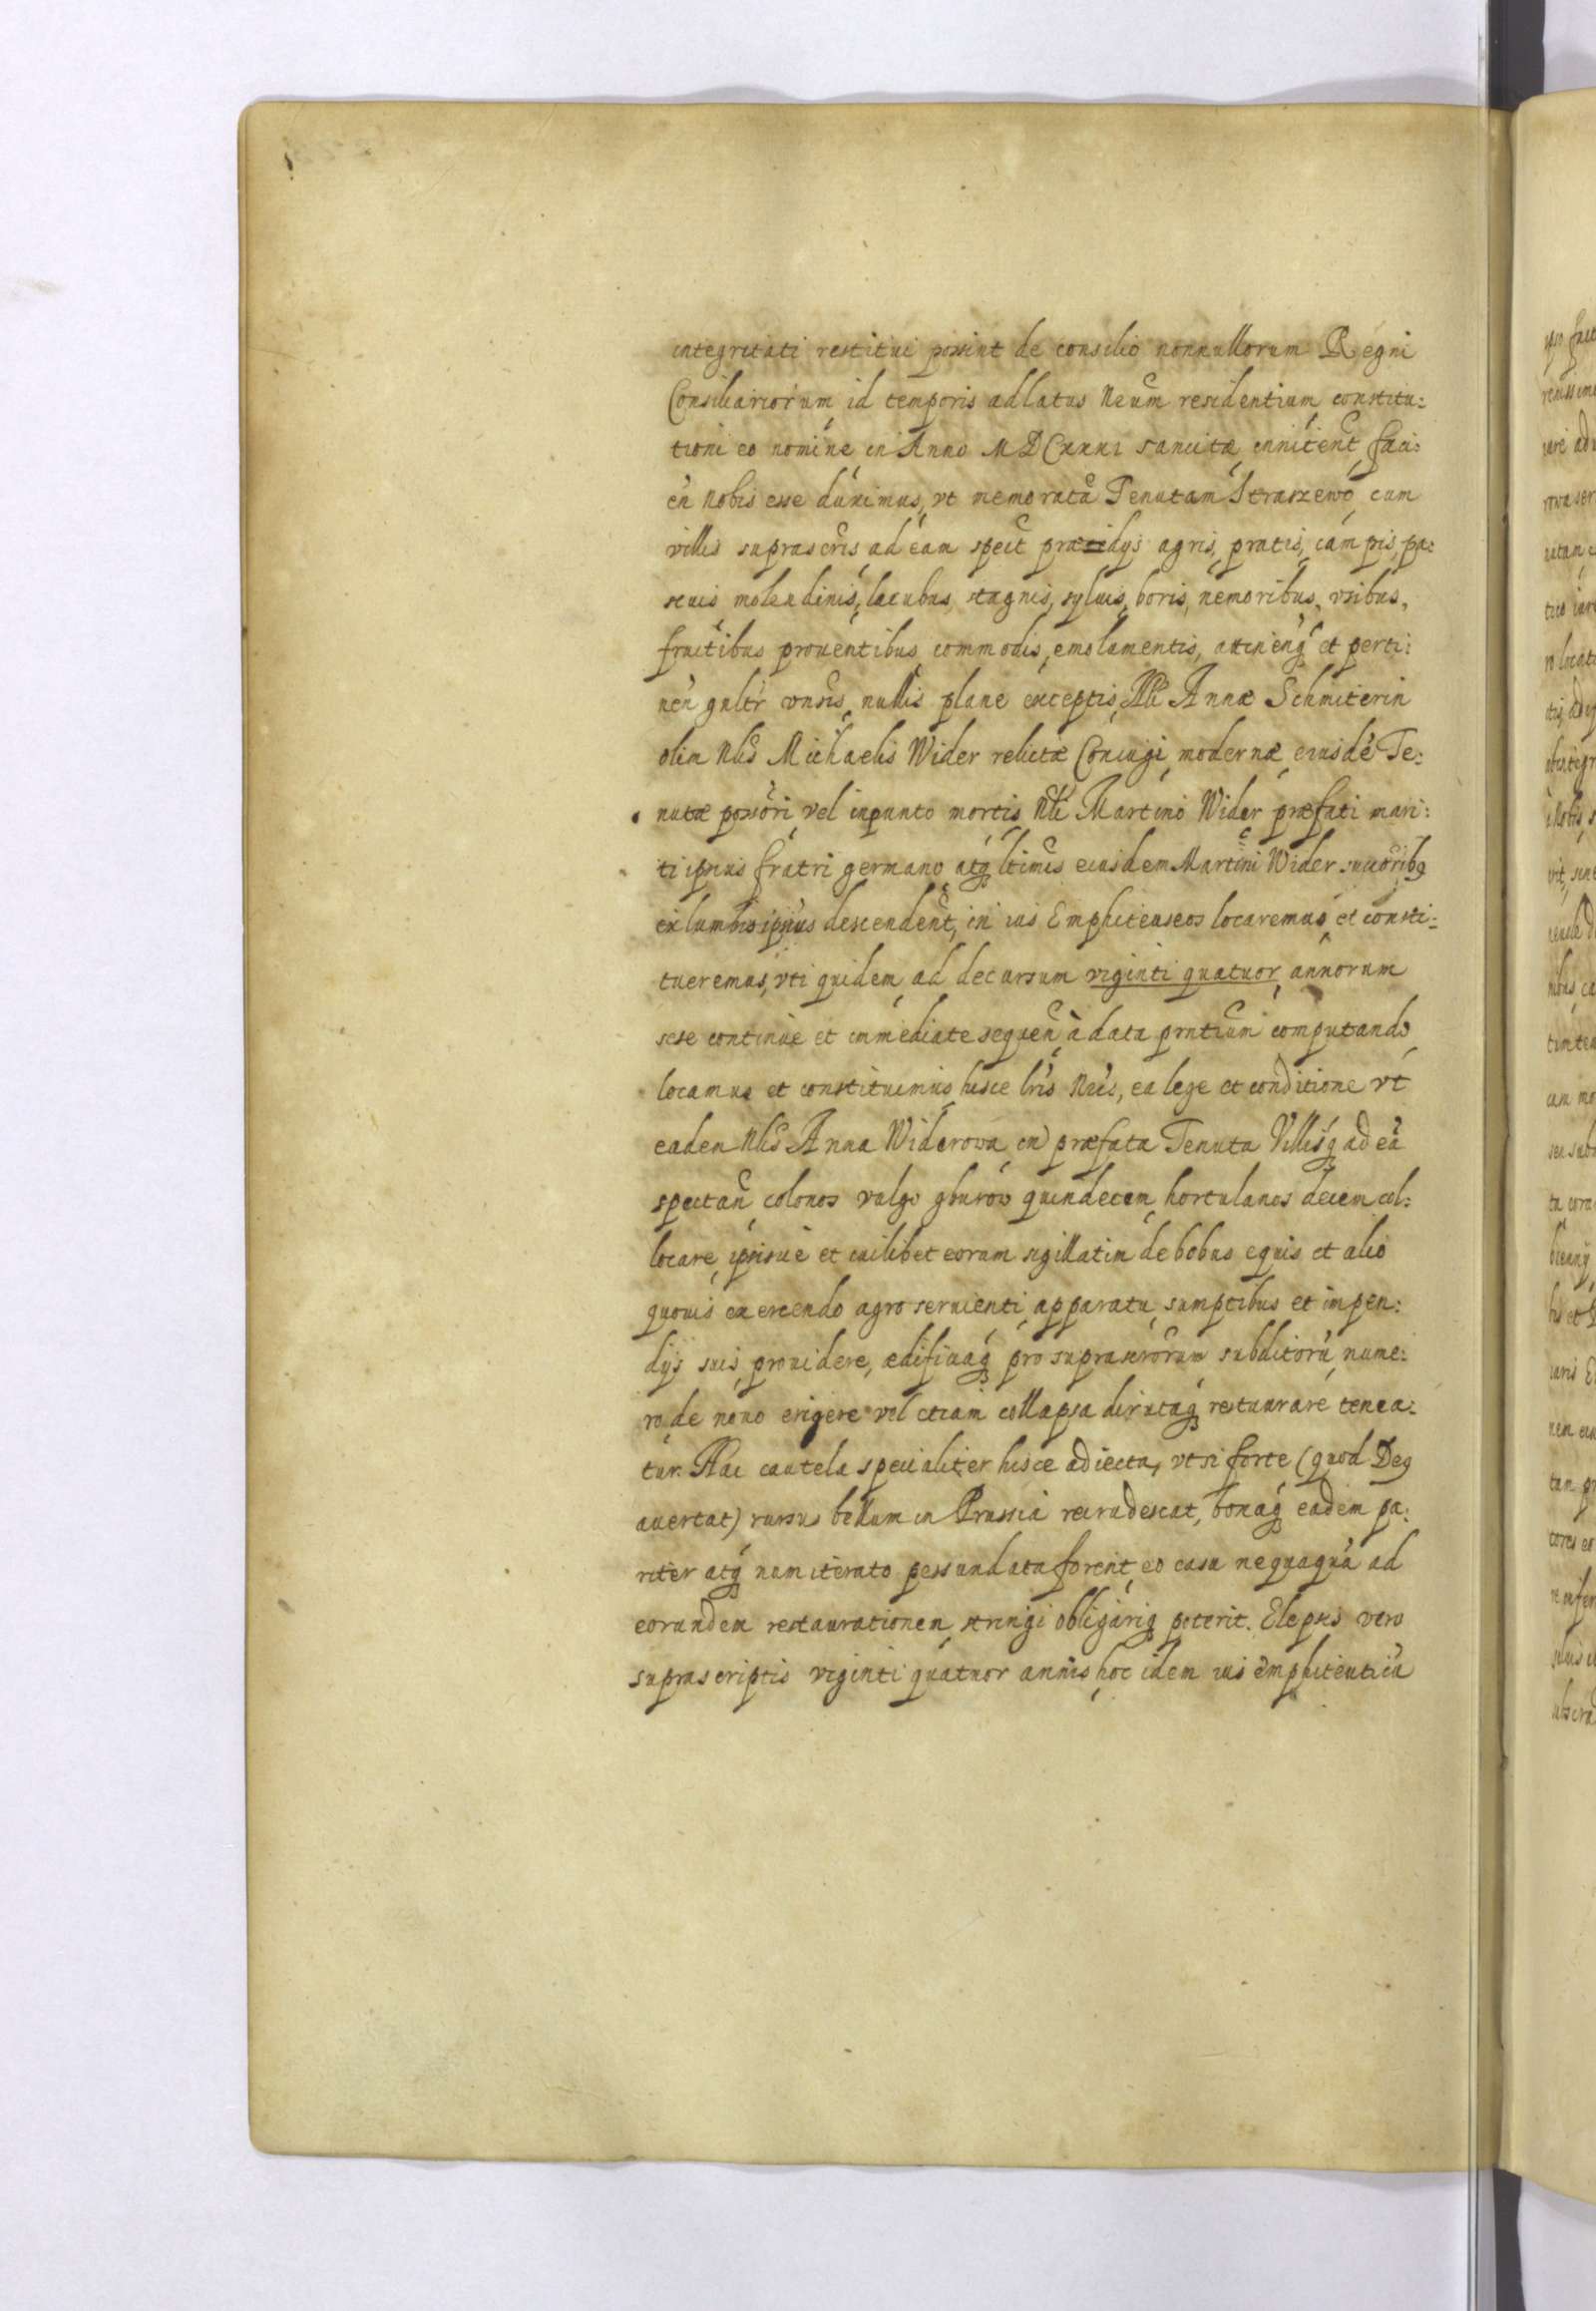 integritati restitui possint de consilio nonnullorum Regni
Consiliariorum id temporis ad latus Nrum residentium constitu:
tioni eo nomine in Anno MDCXXXI sancitæ innitent, faci:
en Nobis esse duximus, vt memoratã Tenutam Straszewo, cum
villis suprascris, ad eam spect prædijs agris, pratis, campis, pa:
scuis molendinis, lacubus stagnis, syluis, boris, nemoribus, vsibus,
fructibus prouentibus commodis, emolumentis, attinenq et perti:
nen gnltr vnsis, nullis plane exceptis, Nli Annæ Schmiterin
olim Nlis Michaelis Wider relictæ Coniugi, modernæ eiusdẽ Te:
nutæ possori, vel in punto mortis Nli Martino Wider præfati mari:
ti ipsius fratri germano atq ltimis eiusdem Martini Wider succoribq
ex lumbis ipsius descendent, in ius Emphiteuseos locaremus et consti:
tueremus, vti quidem ad decursum viginti quatuor annorum
sese continue et immediate sequen à data pntium computando
locamus et constituimus hisce lris Nris, ea lege et conditione vt
eadem Nlis Anna Widerowa in præfata Tenuta Villisq ad eã
spectan colonos vulgo gburow quindecim, hortulanos decem col:
locare, ipsisue et cuilibet eorum sigillatim de bobus equis et alio
quouis exercendo agro seruienti apparatu, sumptibus et impen:
dijs suis, prouidere, ædificiaq pro suprascrorum subditorũ nume:
ro, de nouo erigere vel etiam collapsa dirutaq restaurare tenea:
tur. Hac cautela specialiter hisce adiecta, vt si forte (quod Deg
auertat) rursus bellum in Prussia recrudescat, bonaq eadem pa:
riter atq nunc iterato pessundata forent, eo casu nequaquã ad
eorundem restaurationem stringi obligariq poterit. Elapsis vero
suprascriptis viginti quatuor annis, hoc idem ius emphiteuticũ